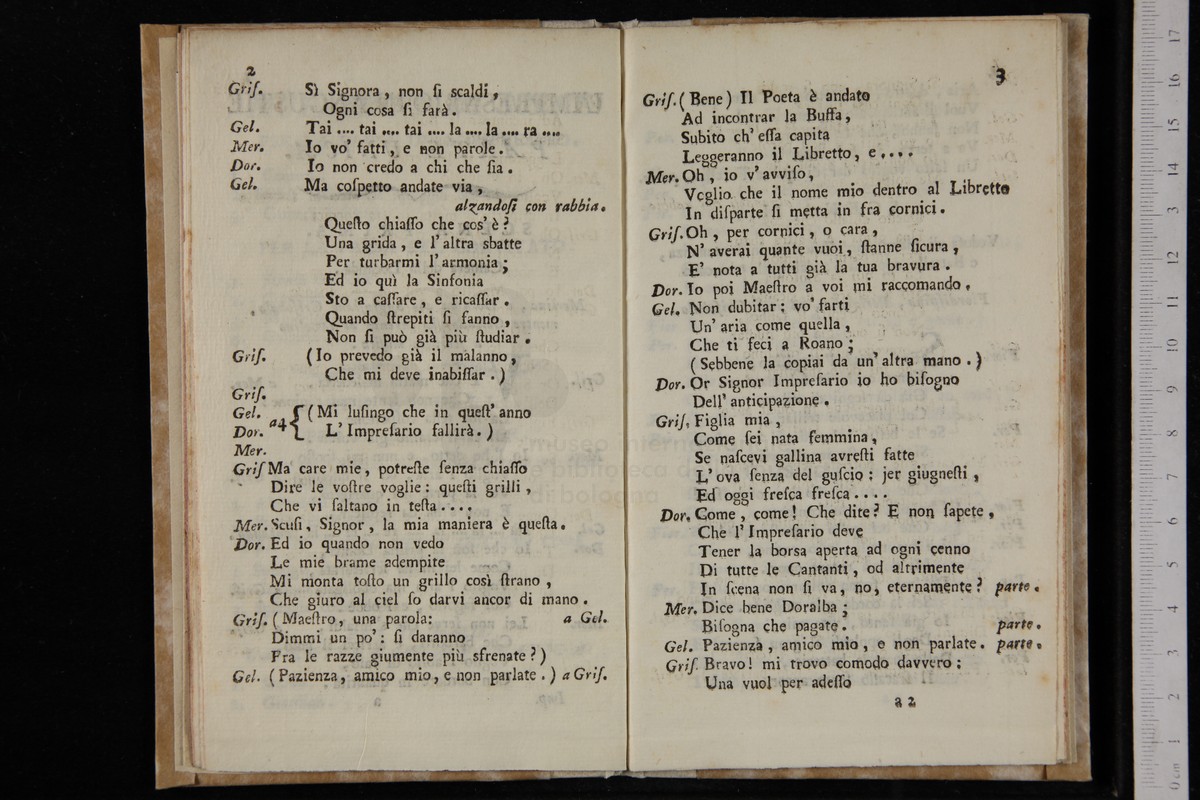 2
Grif. Sì Signora, non ſi scaldi,
Ogni cosa ſi farà.
Gel. Tai .... tai .... tai .... la .... la .... ra ....
Mer. Io vo' fatti, e non parole.
Dor. Io non credo a chi che ſia.
Gel. Ma coſpetto andate via,
alzandoſi con rabbia.
Queſto chiaſſo che cos' è?
Una grida, e l'altra sbatte
Per turbarmi l'armonia;
Ed io quì la Sinfonia
Sto a caſſare, e ricaſſar.
Quando ſtrepiti ſi fanno,
Non ſi può già più ſtudiar.
Grif. (Io prevedo già il malanno,
Che mi deve inabiſſar.)
Grif.
Gel. a4 { (Mi luſingo che in queſt' anno
Dor. L' Impreſario fallirà.)
Mer.
Grif Ma care mie, potreſte ſenza chiaſſo
Dire le voſtre voglie: queſti grilli,
Che vi ſaltano in teſta ....
Mer. Scuſi, Signor, la mia maniera è queſta.
Dor. Ed io quando non vedo
Le mie brame adempite
Mi monta toſto un grillo così ſtrano,
Che giuro al ciel ſo darvi ancor di mano.
Grif. (Maeſtro, una parola: a Gel.
Dimmi un po': ſi daranno
Fra le razze giumente più sfrenate?)
Gel. (Pazienza, amico mio, e non parlate.) a Grif.
a
3
Grif. (Bene) Il Poeta è andato
Ad incontrar la Buffa,
Subito ch' eſſa capita
Leggeranno il Libretto, e ....
Mer. Oh, io v' avviſo,
Voglio che il nome mio dentro al Libretto
In diſparte ſi metta in fra cornici.
Grif. Oh, per cornici, o cara,
N' averai quante vuoi, ſtanne ſicura,
E' nota a tutti già la tua bravura.
Dor. Io poi Maeſtro a voi mi raccomando.
Gel. Non dubitar; vo' farti
Un' aria come quella,
Che ti feci a Roano;
(Sebbene la copiai da un' altra mano.)
Dor. Or Signor Impreſario io ho biſogno
Dell' anticipazione.
Grif, Figlia mia,
Come ſei nata femmina,
Se naſcevi gallina avreſti fatte
L' ova ſenza del guſcio: jer giugneſti,
Ed oggi freſca freſca ....
Dor. Come, come! Che dite? E non ſapete,
Che l' Impreſario deve
Tener la borsa aperta ad ogni cenno
Di tutte le Cantanti, od altrimente
In ſcena non ſi va, no, eternamente? parte.
Mer. Dice bene Doralba;
Biſogna che pagate. parte.
Gel. Pazienza, amico mio, e non parlate. parte.
Grif. Bravo! mi trovo comodo davvero:
Una vuol per adeſſo
a 2
museo inter
e biblioteca d
di bologna